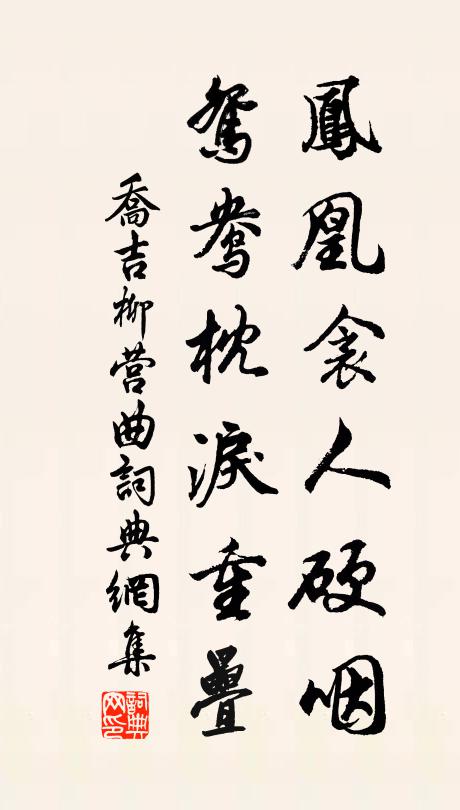 鳳凰衾人硬咽
鴛鴦枕淚重疊
喬吉柳营曲詞典網集
詞典网印